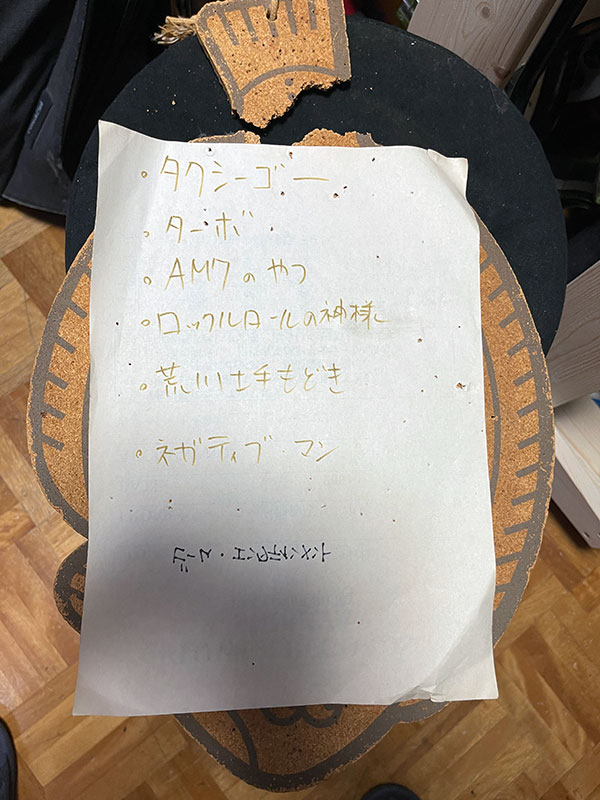 。タクシーゴー
。ターボ
。AM7のやつ
。ロックルロールの神様
。荒川土手もどき
。ネガティブ・マン